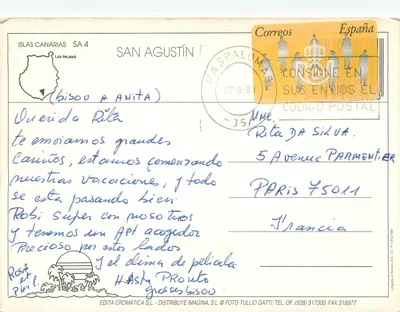 ISLAS CANARIAS SA 4
LAS PALMAS
SAN AGUSTIN
Correos España
MASPALOMAS
CONSIGNE EN
SUS ENVIOS EL
CODIGO POSTAL
(bisou a ANITA)
Querida Rita
te enviamos grandes
Cariños, estamos comenzando
nuestras vacaciones, y todo
se esta pasando bien
Robi super con nosotros
y tenemos un Apt acogedor
Precioso por estos lados
y el clima de pelicula
HASTA PRONTO
gross bisou
MME.
RITA DA SILVA.
5 Avenue PARMENTIER
PARIS 75011
Francia
EDITA CROMATICA SL - DISTRIBUYE IMAGINA, SL © FOTO TULLIO GATTI, TEL. OF. (928) 317300 FAX 318977